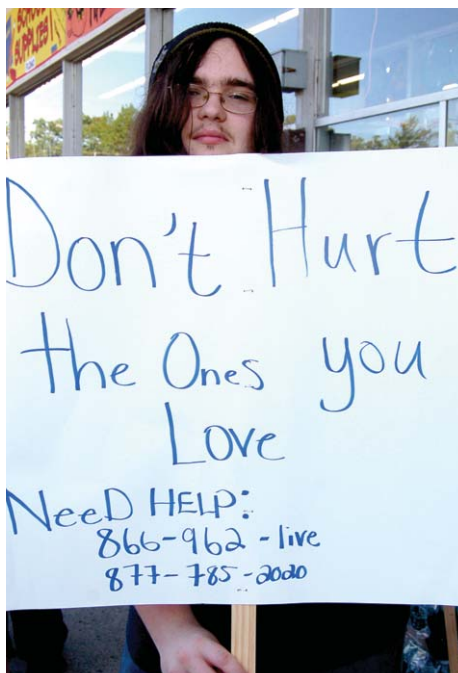 SCHOOL
SUPPLIES!
Don't Hurt
the Ones you
Love
NeeD HELP:
866-962-live
877-785-2020